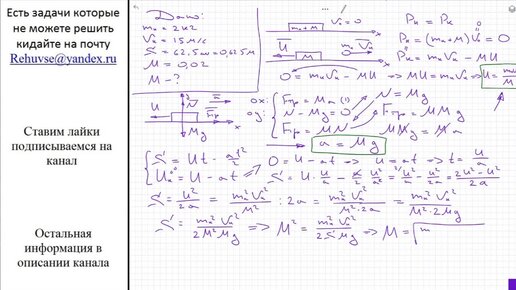 Есть задачи которые
не можете решить
кидайте на почту
Rehuvse@yandex.ru
Ставим лайки
подписываемся на
канал
Остальная
информация в
описании канала
Дано:
mₙ = 2кг
Vₙ = 15м/с
S = 62,5см = 0,625м
μ = 0,02
M - ?
mₙ+M V₀=0
x
U M mₙ Vₙ
x
0 = mₙVₙ - MU => MU = mₙVₙ
Pₙ = Pₖ
Pₙ = (mₙ+M)V₀ = 0
Pₖ = mₙVₙ - MU
U N Fтр
Mg x
ox: Fтр = Ma (1)
oy: N - Mg = 0
N = Mg
Fтр = μN
μMg = Ma
a = μg
S = Ut - at²/2
Uₖ = U - at
0 = U - at => U = at => t = U/a
S = U·U/a - a/2 U²/a² = U²/a - U²/2a = 2U² - U²/2a
S = U²/2a = mₙ²Vₙ²/M² : 2a = mₙ²Vₙ²/M²·2a = mₙ²Vₙ²/M²·2μg
S = mₙ²Vₙ²/2M²μg => M² = mₙ²Vₙ²/2Sμg => M = √m